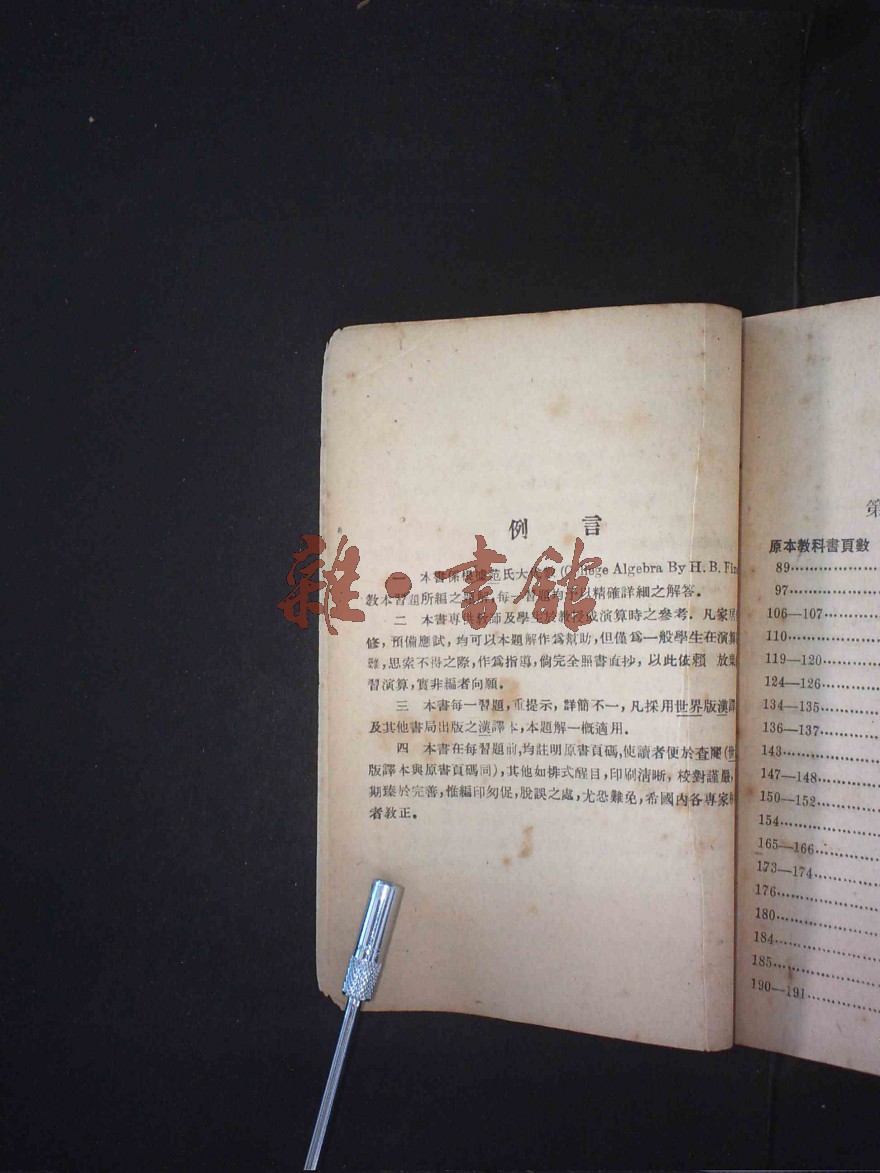 例言
一 本書係根據范氏大代數(College Algebra By H. B. Fin
教本習題所編之題解,每一習題均予以精確詳細之解答。
二 本書專供教師及學生於教授或演算時之參考.凡家居
修,預備應試,均可以本題解作爲幫助,但僅爲一般學生在演算
難,思索不得之際,作爲指導,倘完全照書直抄,以此依賴 放棄
習演算,實非編者向願。
三 本書每一習題,重提示,詳簡不一,凡採用世界版漢譯
及其他書局出版之漢譯本,本題解一概適用。
四 本書在每習題前,均註明原書頁碼,使讀者便於查閱(世
版譯本與原書頁碼同),其他如排式醒目,印刷清晰,校對謹嚴,
期臻於完善,惟編印匆促,脫誤之處,尤恐難免,希國內各專家
者教正。
第
原本教科書頁數
89
97
106—107
110
119—120
124—126
134—135
136—137
143
147—148
150—152
154
165—166
173—174
176
180
184
185
190—191
雜·書館